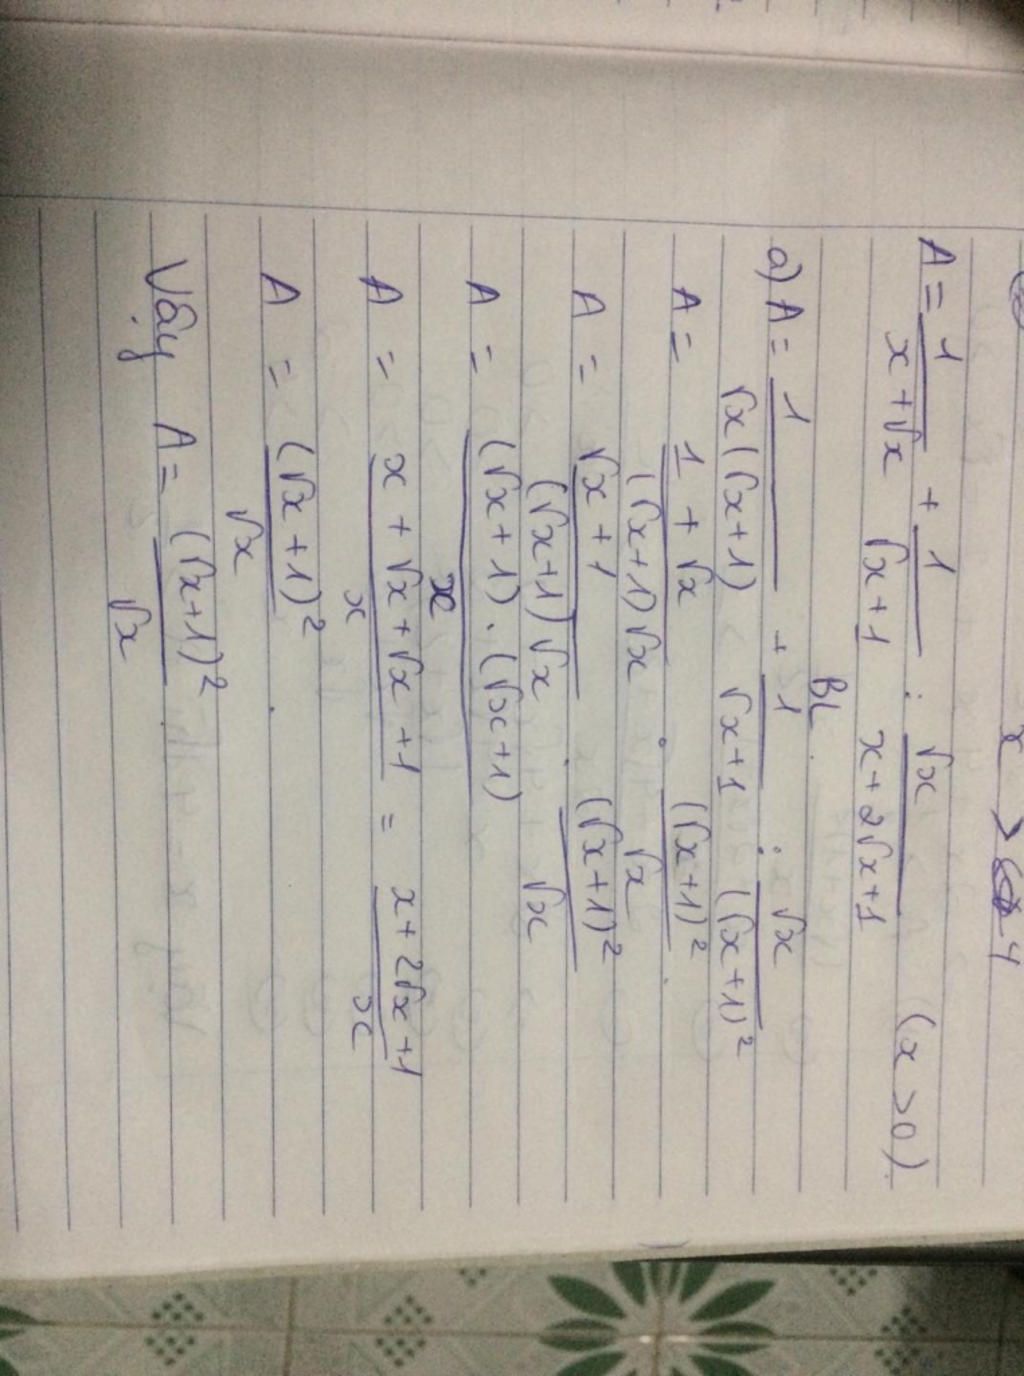 x > 4
A = 1/(x+√x) + 1/(√x+1) : √x/(x+2√x+1) (x > 0).
BL.
a) A = 1/(√x(√x+1)) + 1/(√x+1) : √x/(√x+1)²
A = (1+√x)/((√x+1)√x) · (√x+1)²/√x.
A = (√x+1)/((√x+1)√x) . (√x+1)²/√x
A = ((√x+1).(√x+1))/x
A = (x+√x+√x+1)/x = (x+2√x+1)/x
A = (√x+1)²/√x .
Vậy A = (√x+1)²/√x .